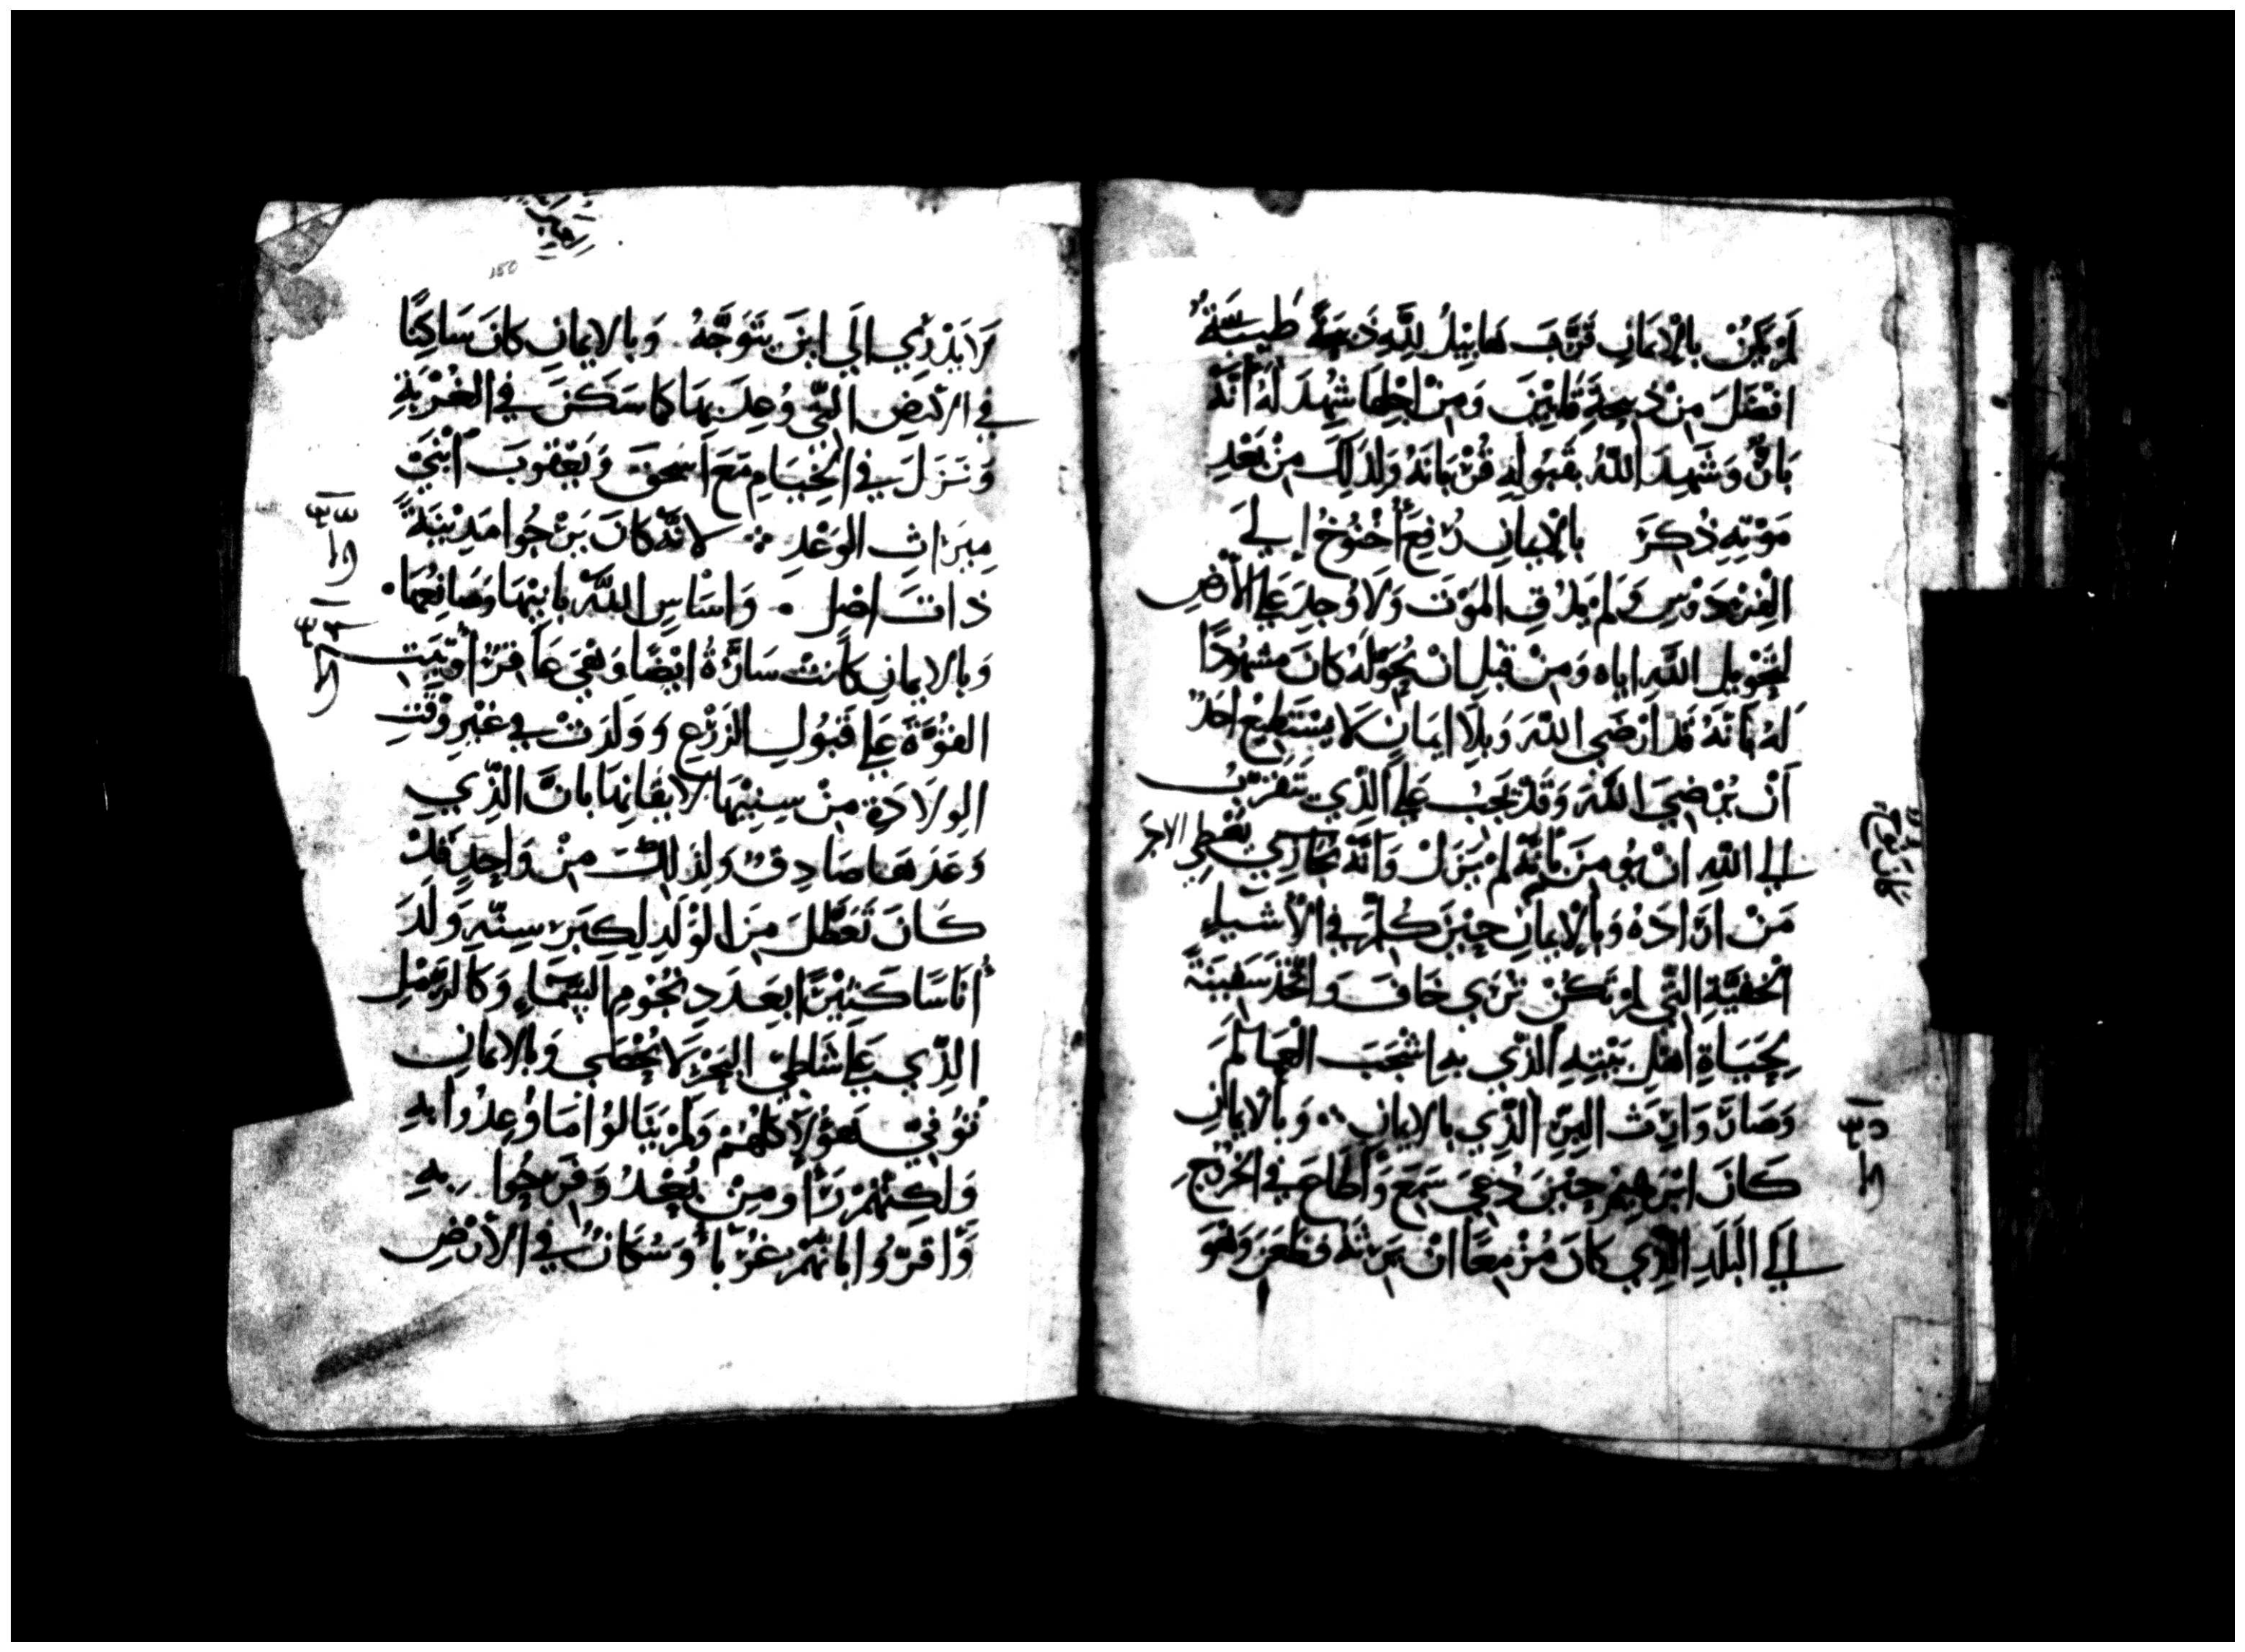 لَمْ يَكُنْ بِالْاِيمَانِ قَرَّبَ هَابِيْلُ لِلَّهِ ذَبِيحَةً طَيِّبَةً
افْضَلَ مِنْ ذَبِيحَةِ قَايِيْنَ وَمِنْ اجْلِهَا شُهِدَ لَهُ انَّهُ
بَارٌّ وَشَهِدَ اللَّهُ بِقَبُولِهِ قُرْبَانَهُ وَلِذَلِكَ مِنْ بَعْدِ
مَوْتِهِ ذُكِرَ بِالْاِيمَانِ رُفِعَ أُخْنُوخُ إلَى
الْفِرْدَوْسِ وَلَمْ يَذُقِ الْمَوْتَ وَلَا وُجِدَ عَلَى الْأَرْضِ
لِتَحْوِيلِ اللَّهِ ايَاه وَمِنْ قَبْلِ انْ يُحَوِّلَهُ كَانَ مَشْهُودًا
لَهُ بِانَّهُ قَدْ ارْضَى اللَّهَ وَبِلَا ايمَانٍ لَا يَسْتَطِيْعُ احَدٌ
أَنْ يُرْضِيَ اللَّهَ وَقَدْ يَجِبُ عَلَى الَّذِي يَتَقَرَّبُ
الَى اللَّهِ انْ يُومِنَ بِانَّهُ لَمْ يَزَلْ وَانَّهُ يُجَازِي يُعْطِي الاجرَ
مَنْ ارَادَهُ وَبِالْاِيمَانِ حِيْنَ كُلِّمَ فِي الْأَشْيَاءِ
الْخَفِيَّةِ الَّتِي لَمْ تَكُنْ تُرَي خَافَ وَاتَّخَذَ سَفِيْنَةً
لِحَيَاةِ اهْلِ بَيْتِهِ الَّذِي بِهِ اشْجَبَ الْعَالَمَ
وَصَارَ وَارِثَ البِرِّ الَّذِي بِالايمَانِ وَبِالْايمَانِ
كَانَ ابْرَهِيْمُ حِيْنَ دُعِيَ سَمِعَ وَأَطَاعَ فِي الْخُرُوْجِ
الَى الْبَلَدِ الَّذِي كَانَ مُزْمِعًا انْ يَرِثَهُ فَظَعَنَ وَهُوَ
كان نوح
لَا يَدْرِي الَى ايْنَ يَتَوَجَّهُ وَبِالايمَانِ كَانَ سَاكِنًا
فِي الارْضِ الَّتِي وُعِدَ بِهَا كَمَا سَكَنَ فِي الْغُرْبَةِ
وَنَزَلَ فِي الْخِيَامِ مَعَ اسْحَقَ وَيَعْقُوبَ ابْنَيْ
مِيرَاثِ الوَعْدِ لانَّهُ كَانَ يَرْجُوا مَدِيْنَةً
ذَاتَ اصْلٍ وَاسَاسٍ اللَّهُ بَانِيْهَا وَصَانِعُهَا
وَبِالايمَانِ كَانَتْ سَارَّةُ ايْضًا وَهِيَ عَاقِرٌ اُوْتِيَتِ
القُوَّةَ عَلَى قَبُولِ الزَرْعِ وَوَلَدَتْ فِي غَيْرِ وَقْتِ
الوِلَادَةِ مِنْ سِنِيْهَا لايقَانِهَا بِانَّ الَّذِي
وَعَدَهَا صَادِقٌ وَلِذَلِكَ مِنْ وَاحِدٍ قَدْ
كَانَ تَعَطَّلَ مِنَ الْوَلَدِ لِكِبَرِ سِنِّهِ وَلَدَ
أُنَاسًا كَثِيْرًا بِعَدَدِ نُجُوْمِ السَّمَاءِ وَكَالرَّمْلِ
الَّذِي عَلَى شَاطِئ البَحْرِ لَا يُحْصَى وَبِالايمَانِ
تُوُفِيَ هَؤُلَاءِ كُلُّهُمْ وَلَمْ يَنَالُوا مَا وُعِدُوا بِهِ
وَلَكِنَّهُمْ رَأَوْهُ مِنْ بُعْدٍ وَفَرِحُوا بِهِ
وَاقَرُّوا بِانَّهُمْ غُرَبَاءُ وَسُكَّانٌ فِي الْأَرْضِ